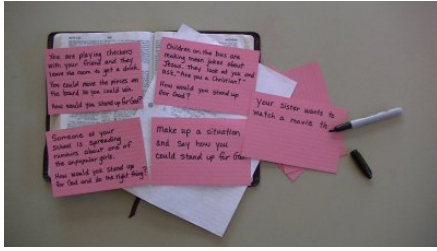 You are playing checkers
with your friend and they
leave the room to get a drink.
You could move the men on
the board so you could win.
How would you stand up for God?
Children on the bus are
making mean jokes about
Jesus. They look at you and
ask, "Are you a Christian?"
How would you stand up
for God?
Someone at your
school is spreading
rumours about one of
the unpopular girls.
How would you stand up
for God and do the right thing?
Make up a situation
and say how you
could stand up for God.
Your sister wants to
watch a movie